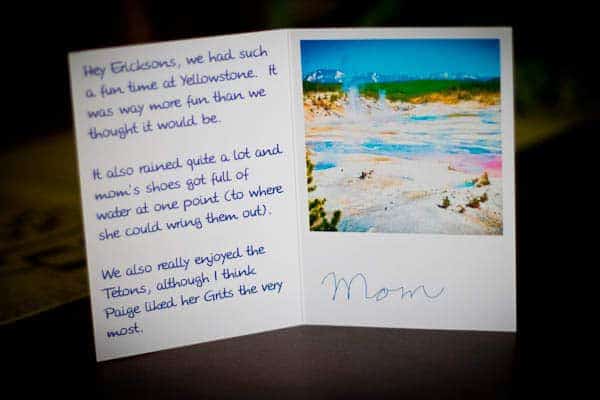 Hey Ericksons, we had such
a fun time at Yellowstone. It
was way more fun than we
thought it would be.
It also rained quite a lot and
mom's shoes got full of
water at one point (to where
she could wring them out).
We also really enjoyed the
Tetons, although I think
Paige liked her Grits the very
most.
Mom